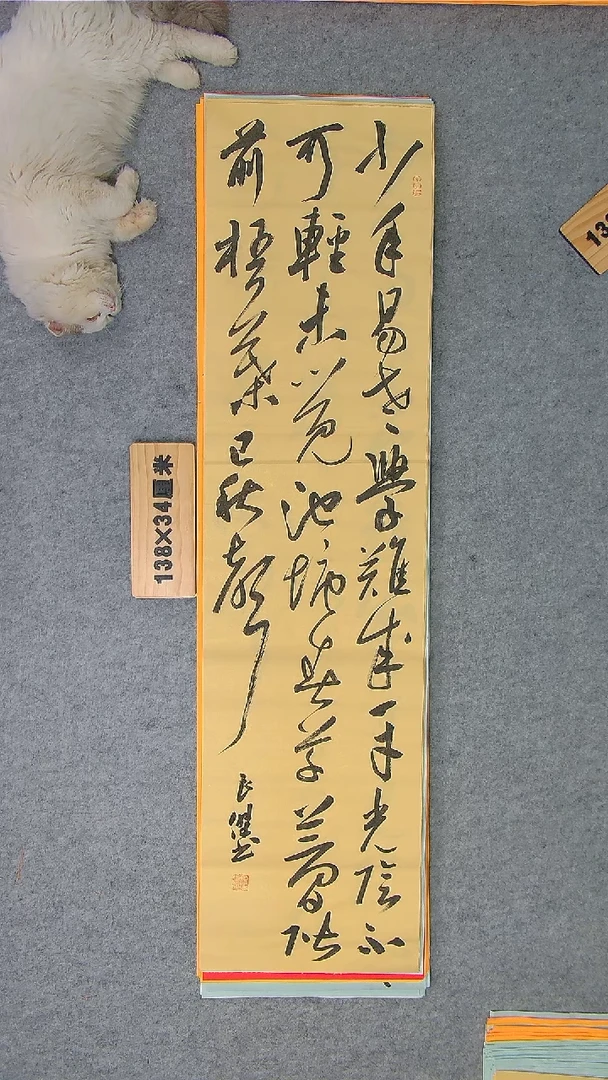 少年易老學難成一寸光陰不
可輕未覺池塘春草夢階
前梧葉已秋聲
良傑書
138X34厘米
13